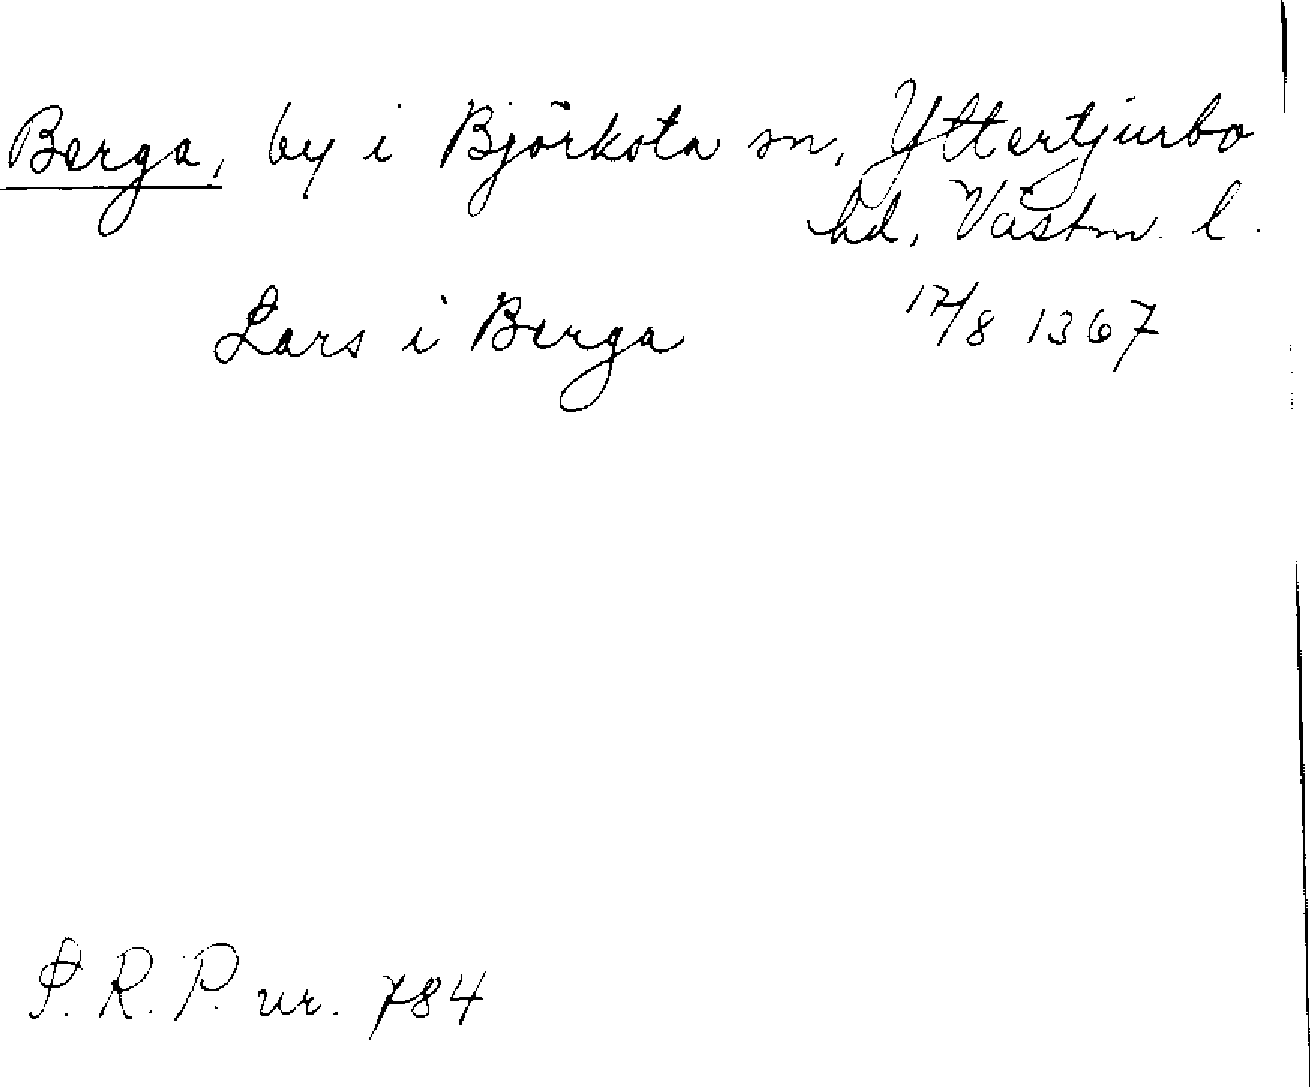 Berga, by i Björksta sn, Yttertjurbo
hd, Västm. l.
Lars i Berga 17/8 1367
S.R.P. nr. 784